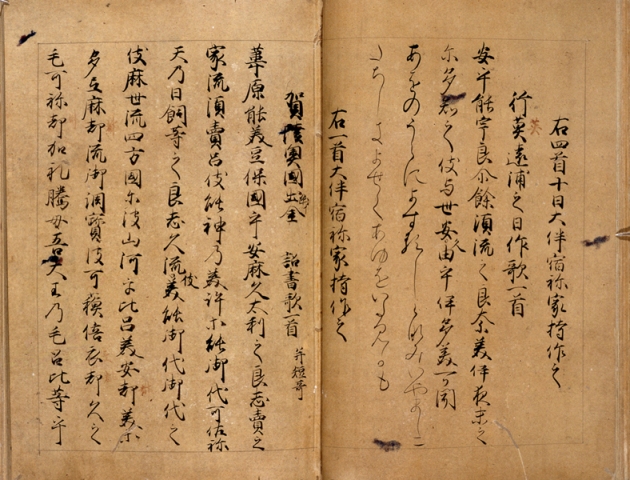 右四首十日大伴宿祢家持作之
行英遠浦之日作歌一首
安乎能宇良尓餘須流之良奈美伊夜末之
尓多知之伎与世久安由乎伊多美可聞
あをのうらによするしらなみいやましに
たちしきよせくあゆをいたみかも
右一首大伴宿祢家持作之
賀陸奥國出金詔書歌一首 并短哥
葦原能美豆保國乎安麻久太利之良志賣之
家流須賣呂伎能神乃美許等能御代可佐祢
天乃日嗣等之良志久流伎美能御代御代之
伎麻世流四方國尓波山河乎比呂美安都美等
多弖麻都流御調寶波可蘇倍衣都久之
毛可祢都加礼騰母吾大王乃毛呂比等乎